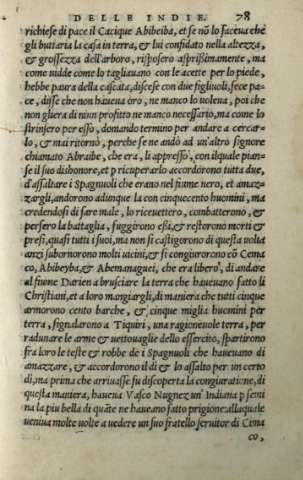 DELLE INDIE. 78
richiese di pace il Cacique Abibeiba, et se nō lo faceua che
gli buttaria la casa in terra, & lui confidato nella altezza,
& grossezza dell'arboro, risposero asprissimamente, ma
come uidde come lo tagliauano con le acette per lo piede,
hebbe paura della cascata, discese con due figliuoli, fece pa=
ce, disse che non haueua oro, ne manco lo uoleua, poi che
non gliera di niun profitto ne manco necessario, ma come lo
strinsero per esso, domando termino per andare a cercar=
lo, & mai ritornò, perche se ne andò ad un'altro signore
chiamato Abraibe, che era, li appresso, con ilquale pian=
se il suo dishonore, et p ricuperarlo accordorono tutta due,
d'assaltare i Spagnuoli che erano nel fiume nero, et amaz=
zargli, andorono adunque la con cinquecento huomini, ma
credendosi di fare male, lo riceuettero, combatterono, &
persero la battaglia, fuggirono essi, & restorono morti &
presi, quasi tutti i suoi, ma non si castigorono di questa uolta
anzi subornorono molti uicini, & si congiurorono cō Cema
co, Abibeyba, & Abemanaguei, che era libero, di andare
al fiume Darien a brusciare la terra che haueuano fatto li
Christiani, et a loro mangiargli, di maniera che tutti cinque
armorono cento barche, & cinque miglia huomini per
terra, signalarono a Tiquiri, una ragioneuole terra, per
radunare le arme & uettouaglie dello essercito, spartirono
fra loro le teste & robbe de i Spagnuoli che haueuano di
amazzare, & accordorono il dì & lo assalto per un certo
dì, ma prima che arriuasse fu discoperta la congiuratione, di
questa maniera, haueua Vasco Nugnez un' Indiana p femi
na la piu bella di quāte ne haueano fatto prigione: allaquale
ueniua molte uolte a uedere un suo fratello seruitor di Cema
co,